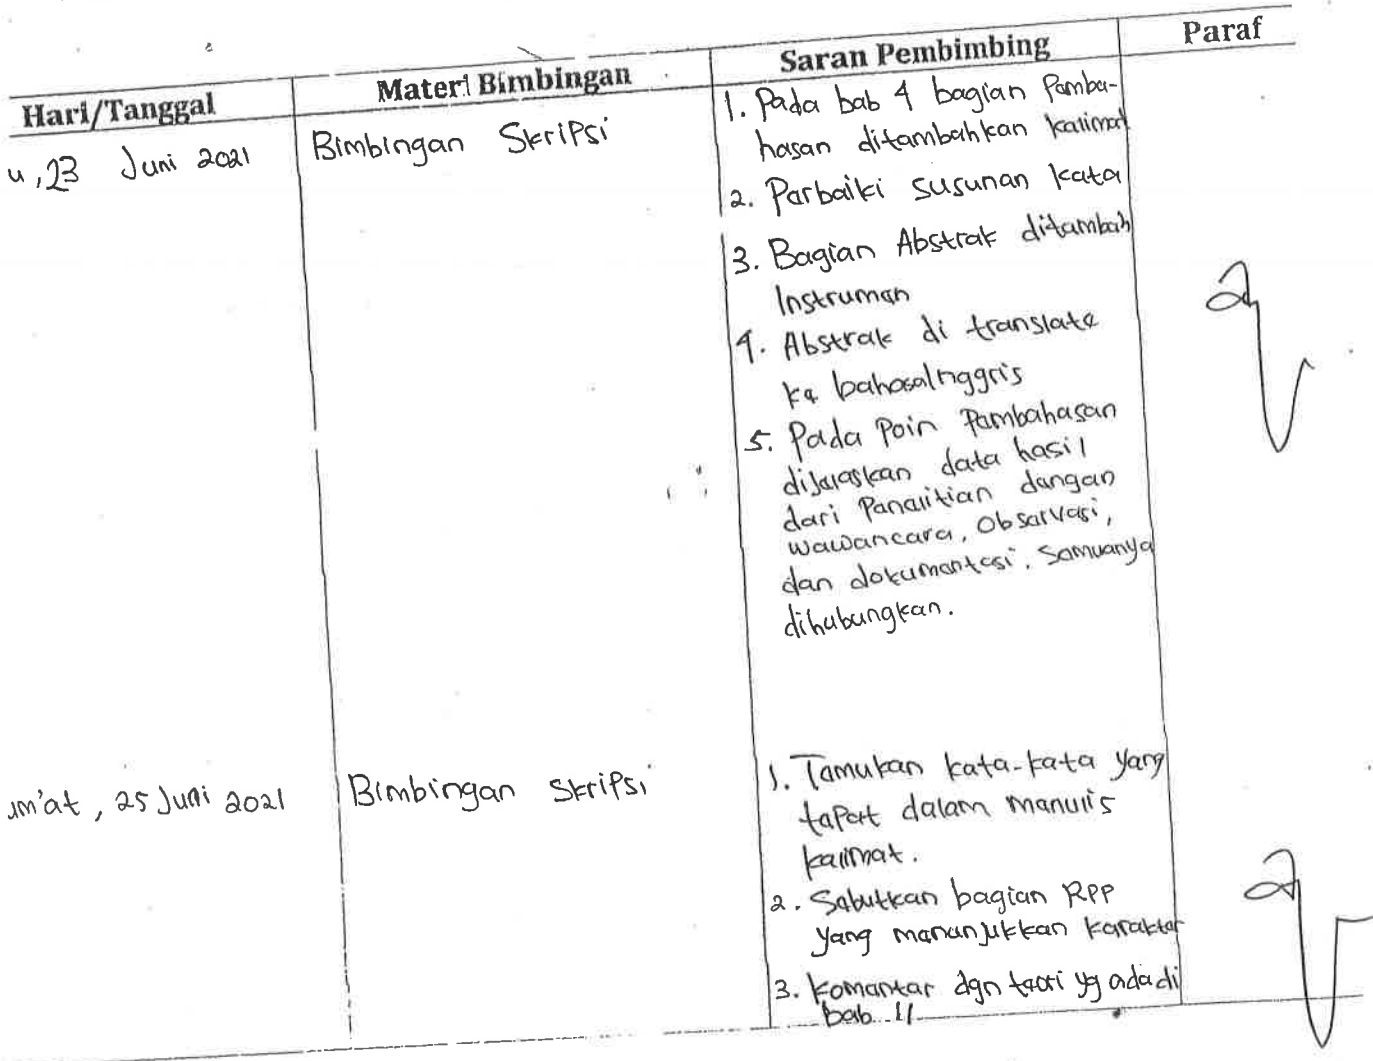 Hari/Tanggal Materi Bimbingan Saran Pembimbing Paraf
u, 23 Juni 2021 Bimbingan Skripsi 1. Pada bab 4 bagian Pemba-
hasan ditambahkan kalimat
2. Perbaiki susunan kata
3. Bagian Abstrak ditambah
Instrumen
4. Abstrak di translate
ke bahasa Inggris
5. Pada Poin Pembahasan
dijelaskan data hasil
dari Penelitian dengan
wawancara, Observasi,
dan dokumentasi. Semuanya
dihubungkan.
um'at, 25 Juni 2021 Bimbingan Skripsi 1. Temukan kata-kata yang
tepat dalam menulis
kalimat.
2. Sebutkan bagian RPP
yang menunjukkan karakter
3. Komentar dgn teori yg ada di
bab II